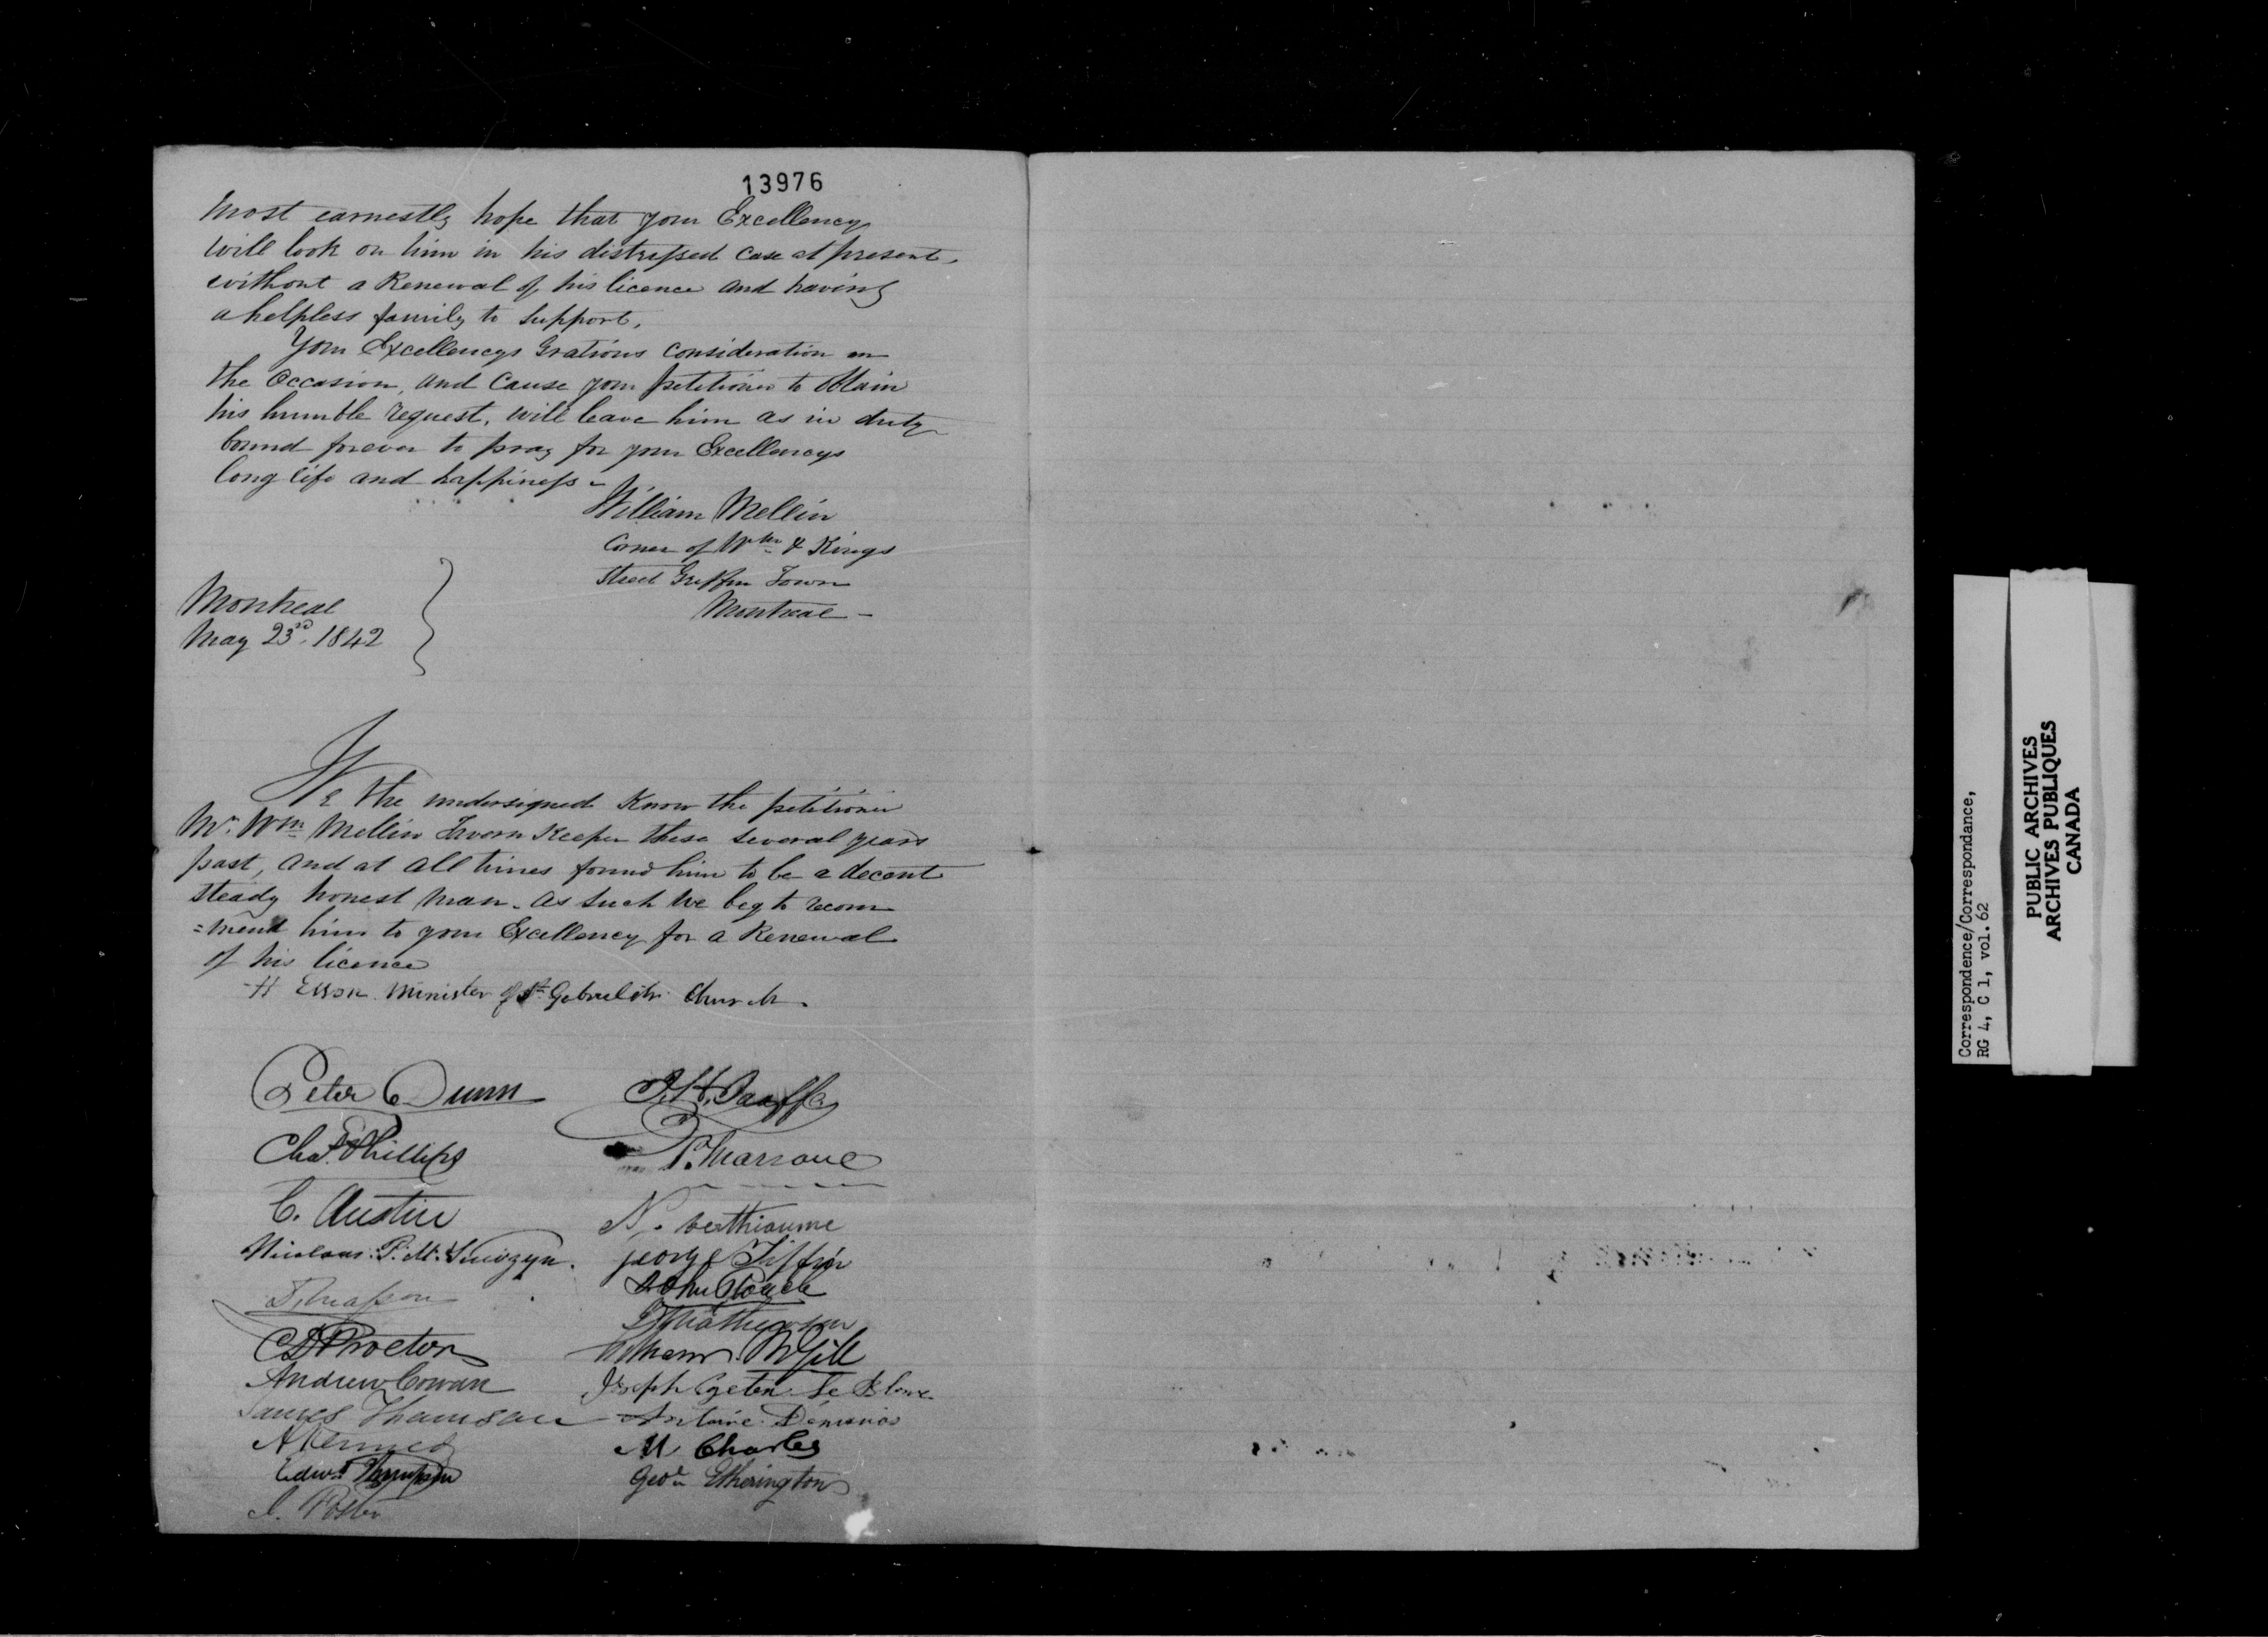 13976
most earnestly hope that your Excellency
will look on him in his distressed case at present,
without a Renewal of his licence and having
a helpless family to support.
Your Excellencys Gratious consideration on
the Occasion, and Cause your petitioner to Obtain
his humble request, will leave him as in duty
bound forever to pray for your Excellencys
long life and happiness -
William Mellin
Corner of Wm & Kings
Street Griffin Town
Montreal -
Montreal
May 23rd. 1842
We the undersigned Know the petitioner
Mr. Wm Mellin Tavern Keeper these several years
past, and at all times found him to be a decent
steady honest man. as such we beg to recom
=mend him to your Excellency for a Renewal
of his licence
H Esson Minister of St Gabriel Str. Church.
Peter Dunn
Chas. Phillips
C. Austin
CD Proctor
Andrew Cowan
James Thomson
A Kennedy
Edwd. Thompson
Foster
N. berthiaume
george Tiffin
John
William McGill
Joseph Le Blanc
Antoine
M Charles
Geo. Etherington
Correspondence/Correspondance,
RG 4, C 1, vol. 62
PUBLIC ARCHIVES
ARCHIVES PUBLIQUES
CANADA